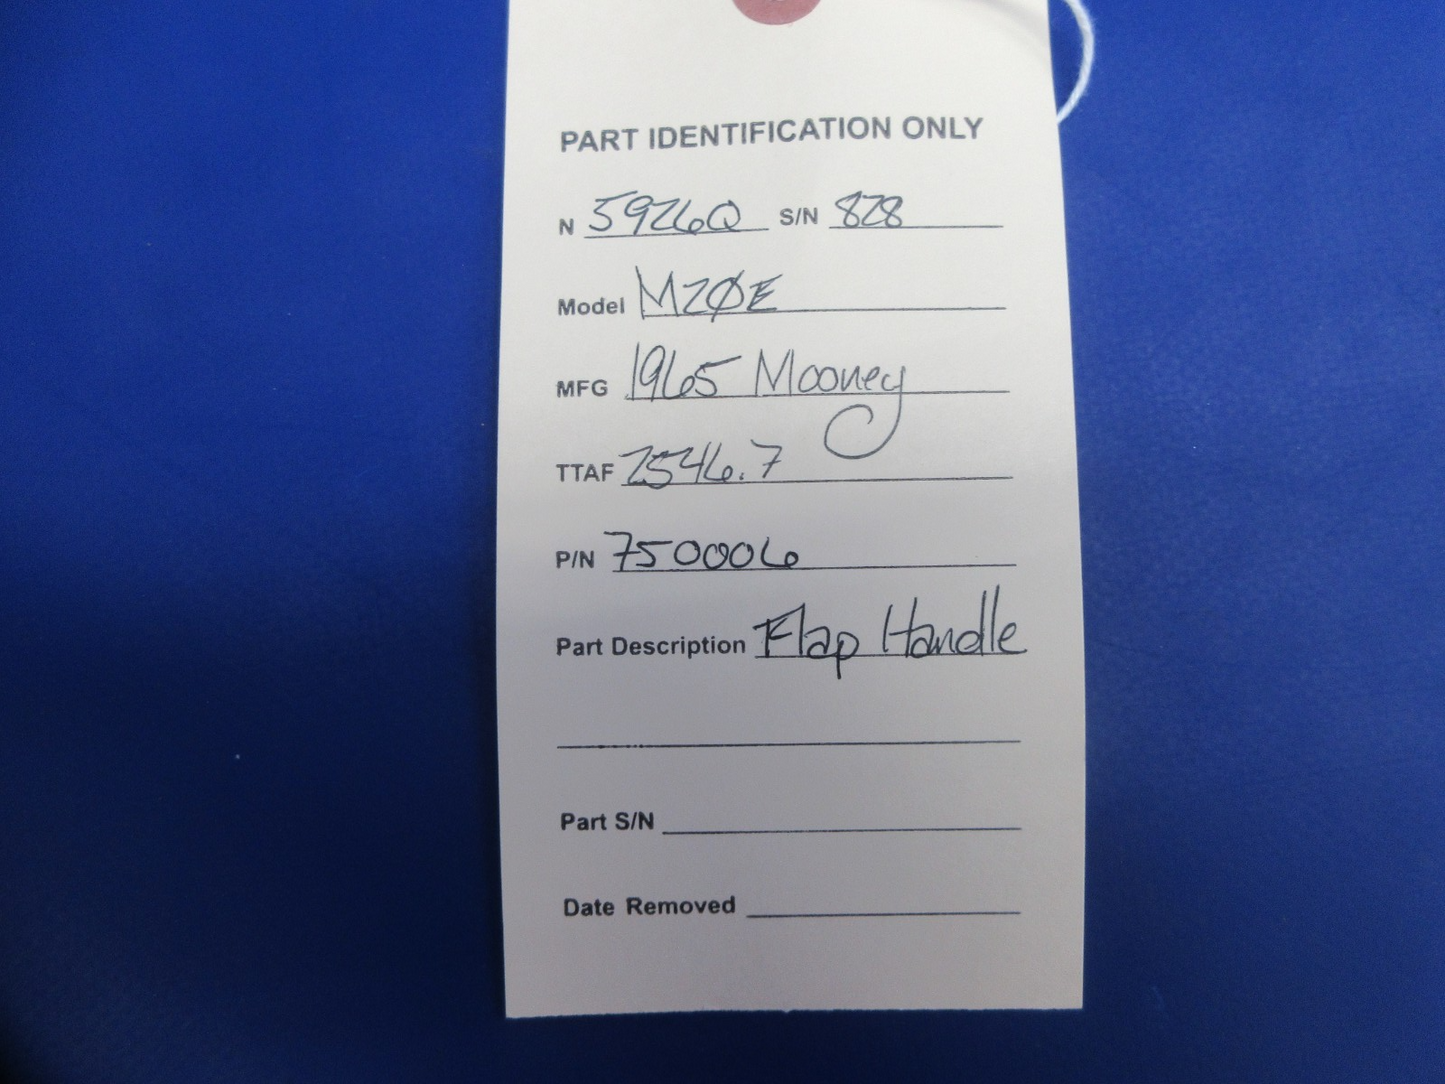 PART IDENTIFICATION ONLY
N 5926Q S/N 828
Model M20E
MFG 1965 Mooney
TTAF 2546.7
P/N 750006
Part Description Flap Handle
Part S/N
Date Removed